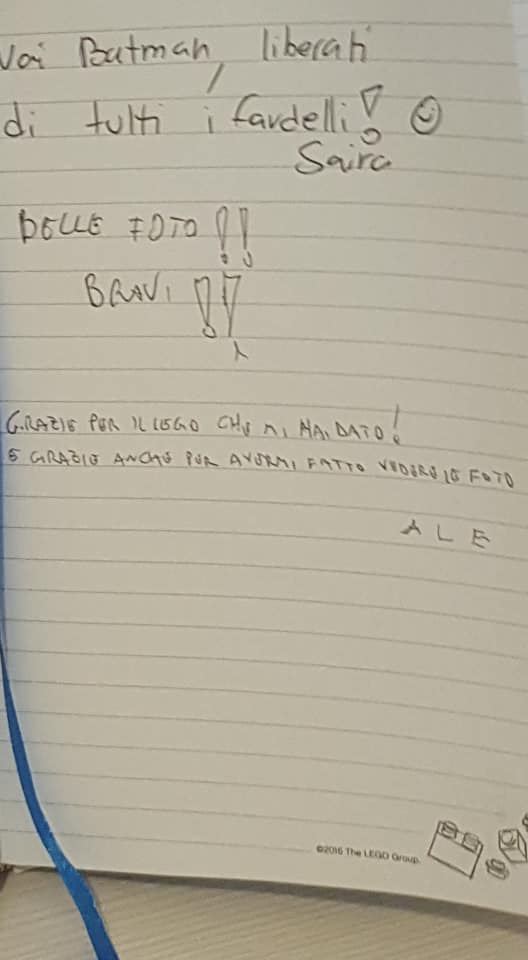 Vai Batman, liberati
di tutti i fardelli! ☺
Saira
BELLE FOTO!!
BRAVI!!
GRAZIE PER IL LEGO CHE MI HAI DATO!
E GRAZIE ANCHE PER AVERMI FATTO VEDERE LE FOTO
ALE
©2016 The LEGO Group.